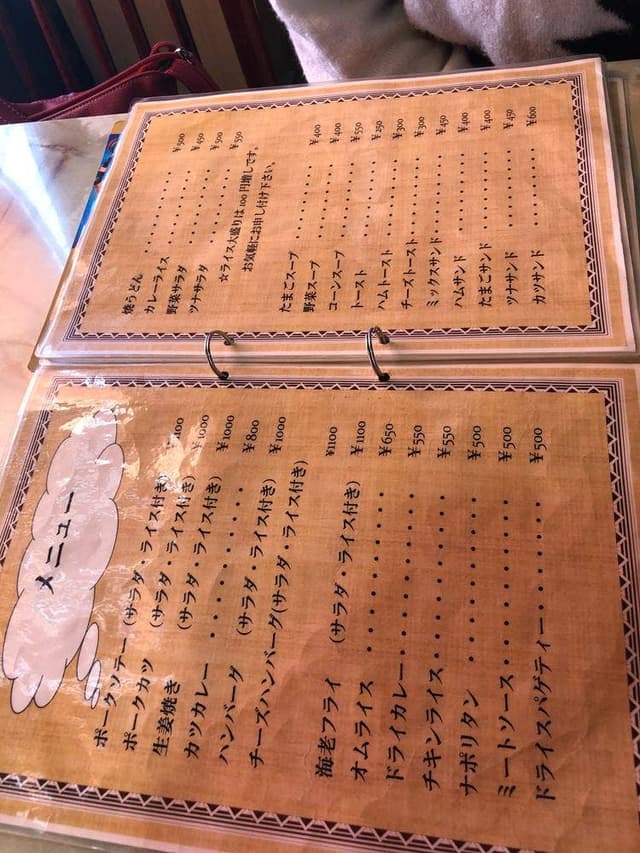 メニュー
ポークソテー (サラダ・ライス付き) ¥1100
ポークカツ (サラダ・ライス付き) ¥1000
生姜焼き (サラダ・ライス付き) ¥1000
カツカレー・・・・・・・・ ¥800
ハンバーグ (サラダ・ライス付き) ¥1000
チーズハンバーグ(サラダ・ライス付き) ¥1100
海老フライ (サラダ・ライス付き) ¥1100
オムライス・・・・・・・・ ¥650
ドライカレー・・・・・・・・ ¥550
チキンライス・・・・・・・・ ¥550
ナポリタン・・・・・・・・ ¥500
ミートソース・・・・・・・・ ¥500
ドライスパゲティー・・・・・・ ¥500
焼うどん・・・・・・・・ ¥500
カレーライス・・・・・・・・ ¥450
野菜サラダ・・・・・・・・ ¥500
ツナサラダ・・・・・・・・ ¥550
☆ライス大盛りは100円増しです。
お気軽にお申し付け下さい。
たまごスープ・・・・・・・・ ¥400
野菜スープ・・・・・・・・ ¥400
コーンスープ・・・・・・・・ ¥550
トースト・・・・・・・・ ¥250
ハムトースト・・・・・・・・ ¥300
チーズトースト・・・・・・・・ ¥300
ミックスサンド・・・・・・・・ ¥450
ハムサンド・・・・・・・・ ¥400
たまごサンド・・・・・・・・ ¥400
ツナサンド・・・・・・・・ ¥450
カツサンド・・・・・・・・ ¥600